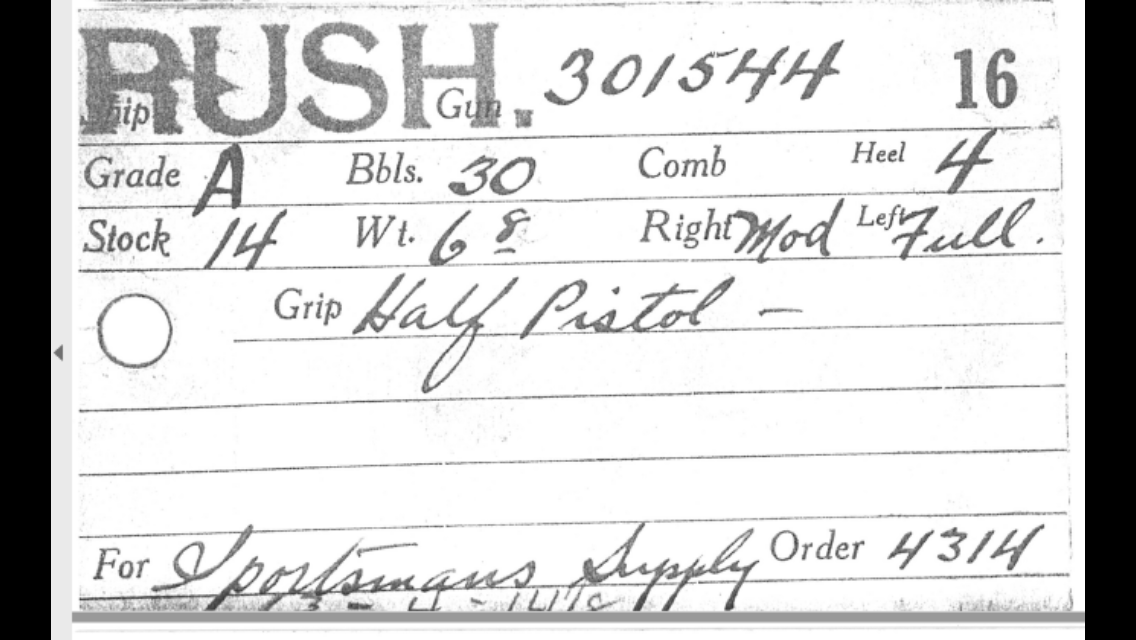 RUSH. Ship Gun 301544 16
Grade A Bbls. 30 Comb Heel 4
Stock 14 Wt. 6 8 Right Mod Left Full.
Grip Half Pistol –
For Sportsmans Supply Order 4314